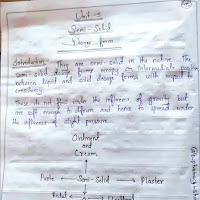 Unit-3
Semi-Solid
Dosage form
Introduction: They are semi-solid in the nature. The
semi-solid dosage forms occupy an intermediate position
between liquid and solid dosage forms with respect to
consistency.
These do not flow under the influence of gravity but
are soft enough to deform and hence to spread under
the influence of slight pressure.
Ointment
and
Cream
Paste
Semi-Solid
Plaster